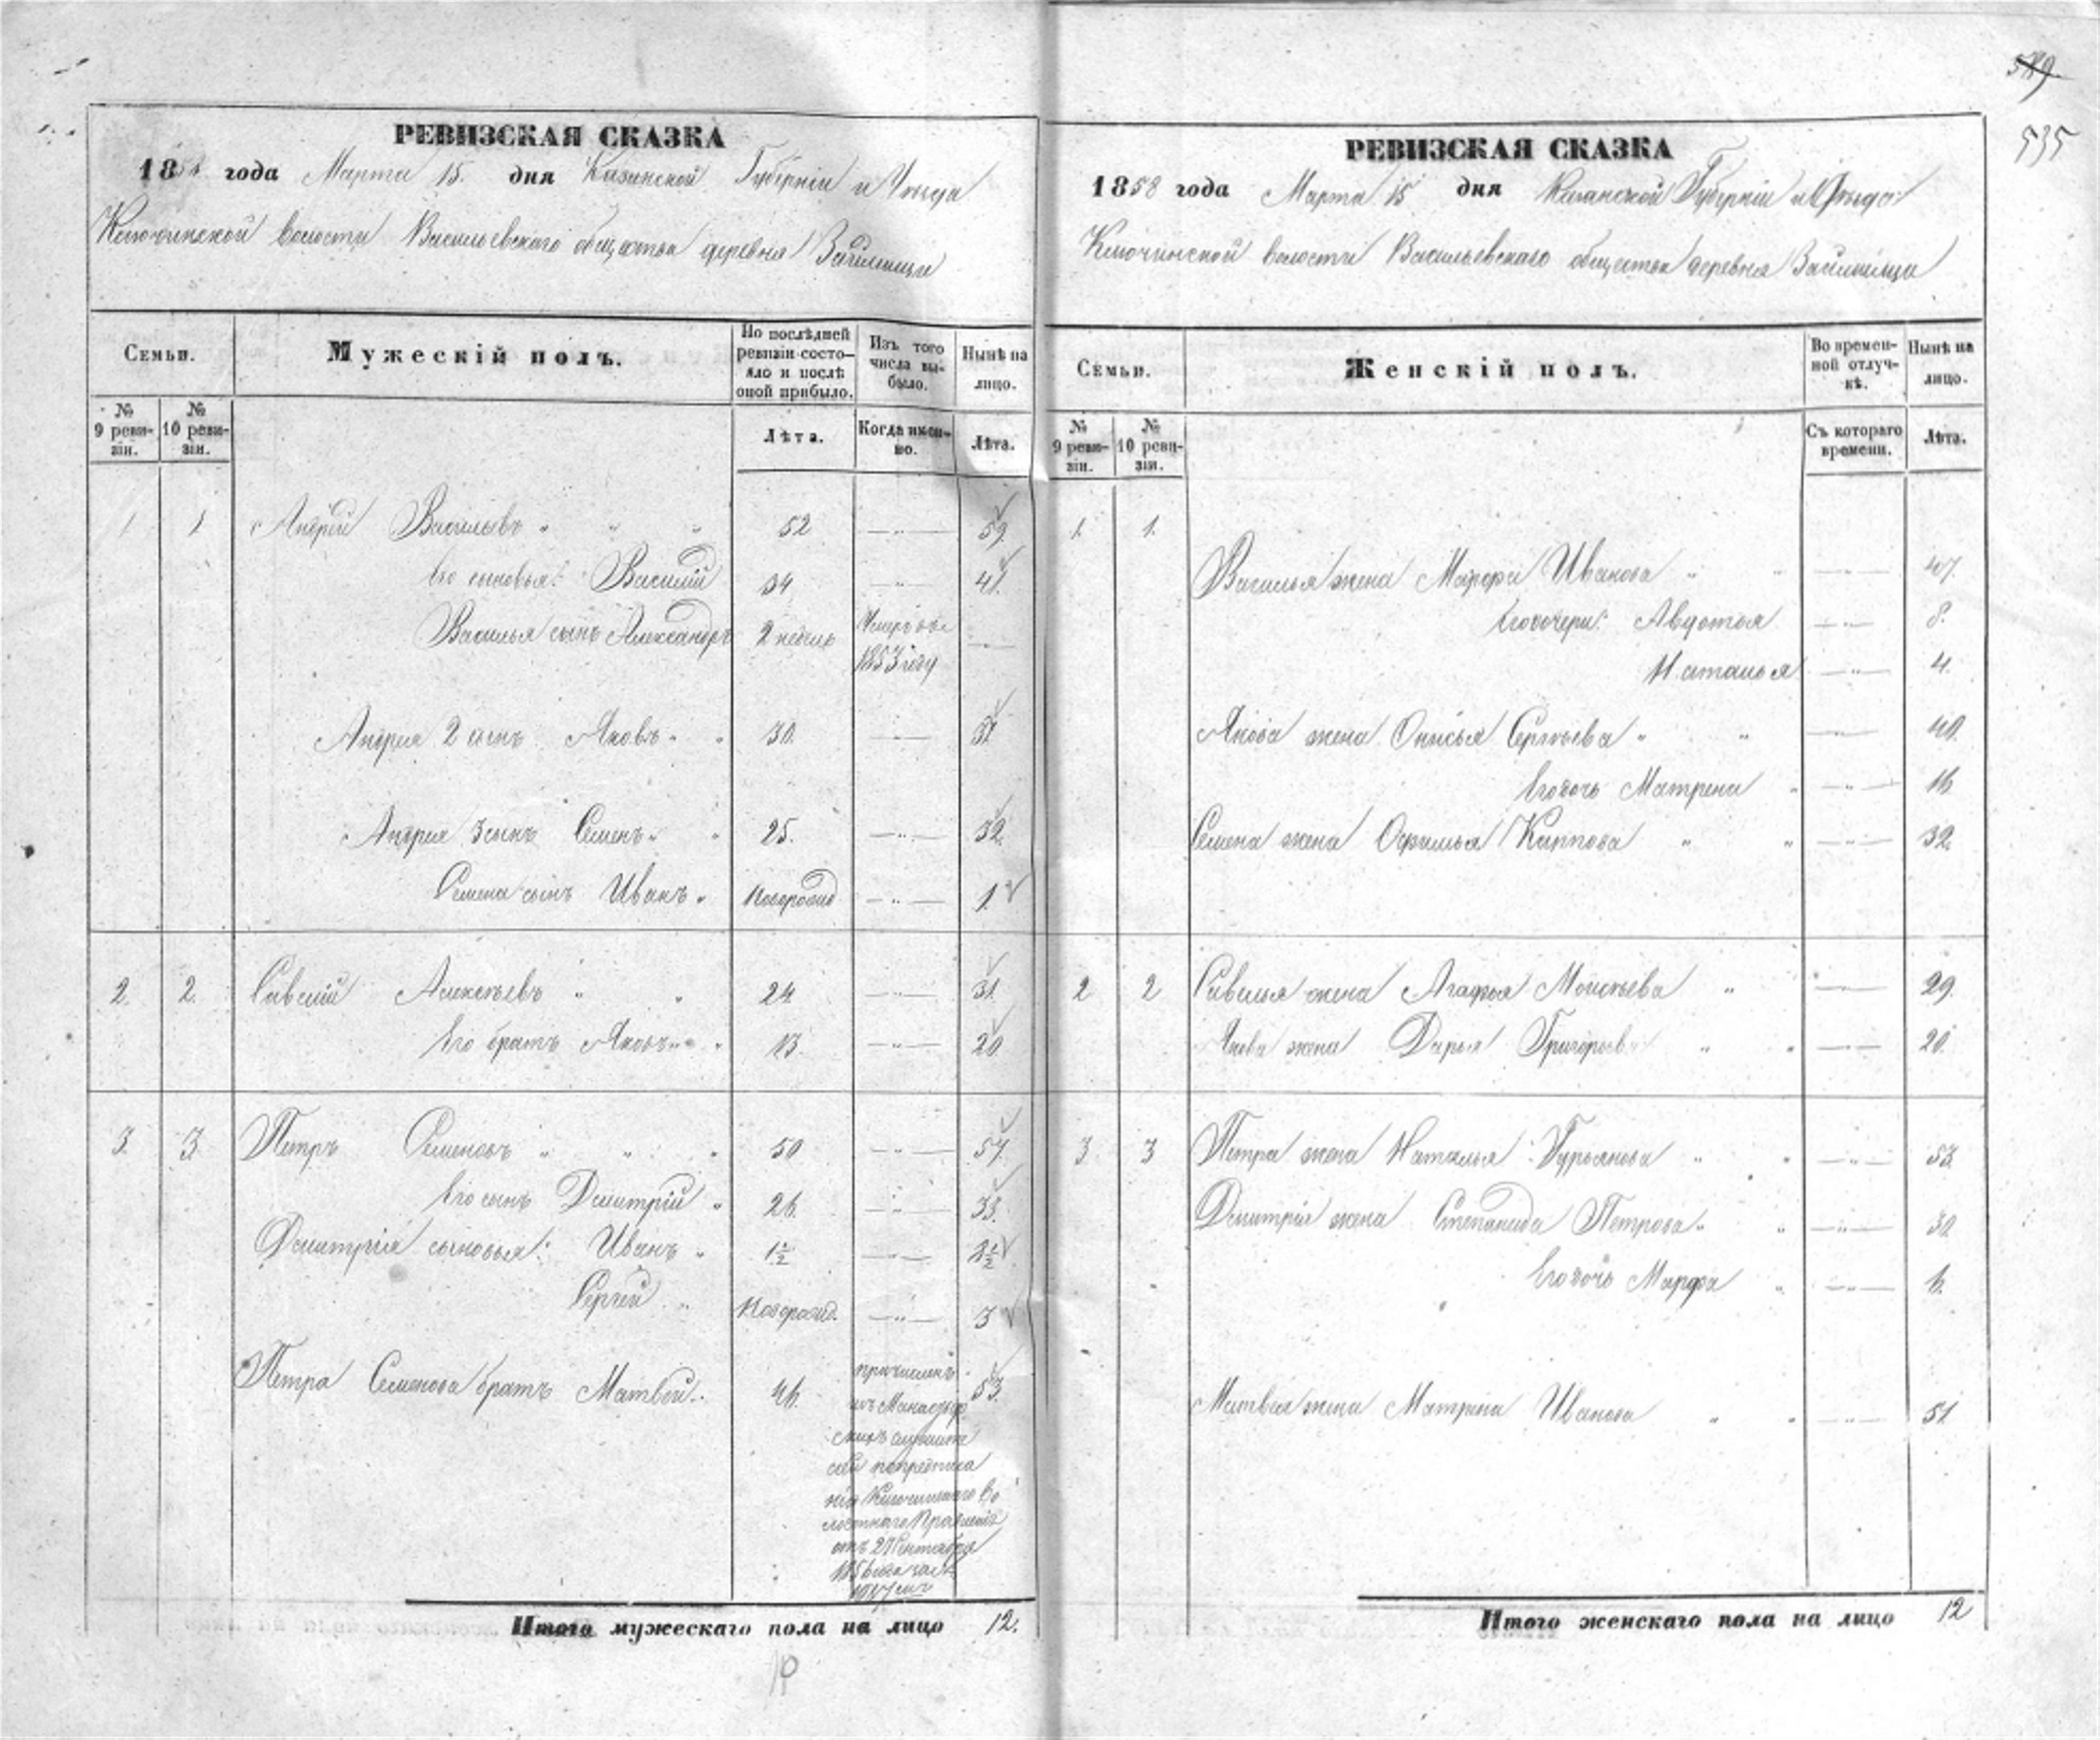 589
535
РЕВИЗСКАЯ СКАЗКА
1858 года Марта 15. дня Казанской Губерніи и Уѣзда
Ключинской волости Васильевскаго общества деревня Займищи
Семьи.
Мужескій полъ.
По послѣдней ревизіи состояло и послѣ оной прибыло.
Изъ того числа выбыло.
Нынѣ на лицо.
№ 9 ревизіи.
№ 10 ревизіи.
Лѣта.
Когда именно.
Лѣта.
1 1 Андрей Васильевъ " " " 52 —"— 59.
Его сыновья: Василій 34 —"— 41.
Василья сынъ Александръ 2 недель Умеръ въ 1853 году —"—
Андрея 2 сынъ Яковъ " " 30. —"— 37
Андрея 3 сынъ Семенъ " " 25. —"— 32.
Семена сынъ Иванъ " Новорожд —"— 1.
2. 2. Савелій Алексѣевъ " " 24 —"— 31.
Его братъ Яковъ " " 13. —"— 20.
3. 3 Петръ Семеновъ " " " 50 —"— 57.
Его сынъ Дмитрій " 26. —"— 33.
Дмитрія сыновья: Иванъ " 1½ —"—
Сергей " Новорожд. —"— 3
Петра Семенова братъ Матвей. 46. причисленъ 53.
отъ 21 Сентября
Итого мужескаго пола на лицо 12.
РЕВИЗСКАЯ СКАЗКА
1858 года Марта 15 дня Казанской Губерніи и Уѣзда
Ключинской волости Васильевскаго общества деревня Займищи
Семьи.
Женскій полъ.
Во временной отлучкѣ.
Нынѣ на лицо.
№ 9 ревизіи.
№ 10 ревизіи.
Съ котораго времени.
Лѣта.
1. 1.
Василья жена Марфа Иванова " " —"— 47.
Его дочери: Авдотья —"— 8.
Наталья —"— 4.
Якова жена Онисья Сергѣева " " —"— 40.
Его дочь Матрена " —"— 16
Семена жена Офимья Карпова " " —"— 32.
2 2 Савелья жена Агафья Моисѣева " —"— 29.
Якова жена Дарья Григорьева " " —"— 20.
3 3 Петра жена Наталья Гурьянова " " —"— 53.
Дмитрія жена Степанида Петрова " " —"— 30
Его дочь Марфа " —"— 6.
Матвея жена Матрена Иванова " " —"— 51
Итого женскаго пола на лицо 12